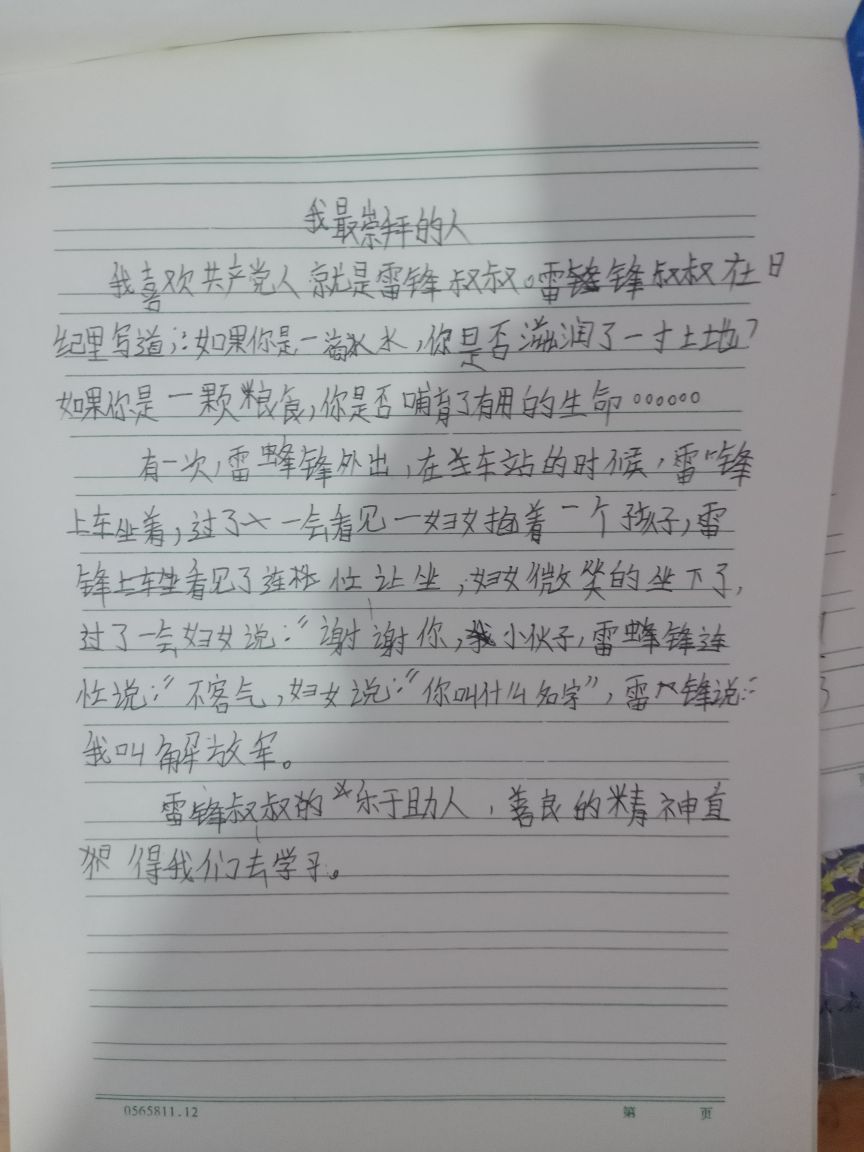 我最崇拜的人
我喜欢共产党人就是雷锋叔叔。雷锋叔叔在日
纪里写道;:如果你是一滴水,你是否滋润了一寸土地?
如果你是一颗粮食,你是否哺育了有用的生命。。。。。。
有一次,雷锋外出,在车站的时候,雷锋
上车坐着,过了一会看见一妇女抱着一个孩子,雷
锋看见了连忙让坐,妇女微笑的坐下了,
过了一会,妇女说:"谢谢你,小伙子,雷锋连
忙说:"不客气,妇女说:"你叫什么名字",雷锋说:
我叫解放军。
雷锋叔叔的乐于助人,善良的精神直
得我们去学习。
0565811.12
第 页